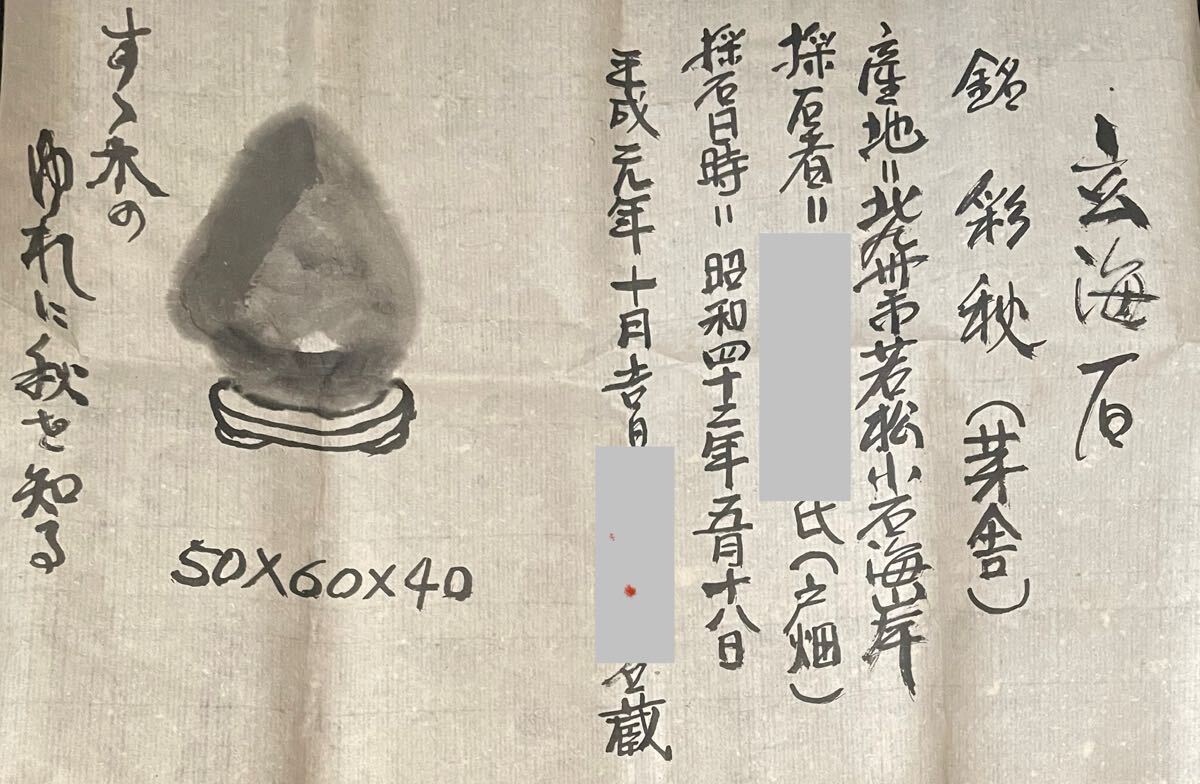 玄海石
銘 彩秋(芽舎)
産地=北九州市若松小石海岸
採石者= 氏(戸畑)
採石日時=昭和四十三年五月十八日
平成元年十月吉日 蔵
50X60X40
すゝ木の
ゆれに秋を知る